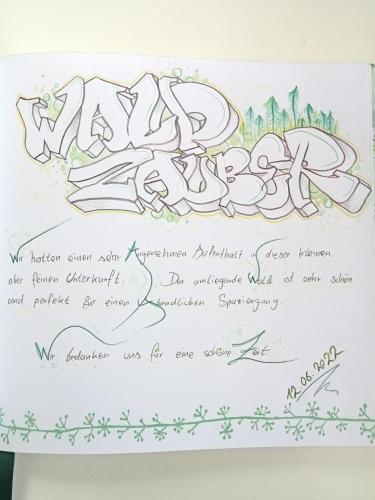 WALD
ZAUBER
Wir hatten einen sehr Angenehmen Aufenthalt in dieser kleinen,
aber feinen Unterkunft. Der umliegende Wald ist sehr schön
und perfekt für einen abendlichen Spaziergang.
Wir bedanken uns für eine schöne Zeit.
12.06.2022